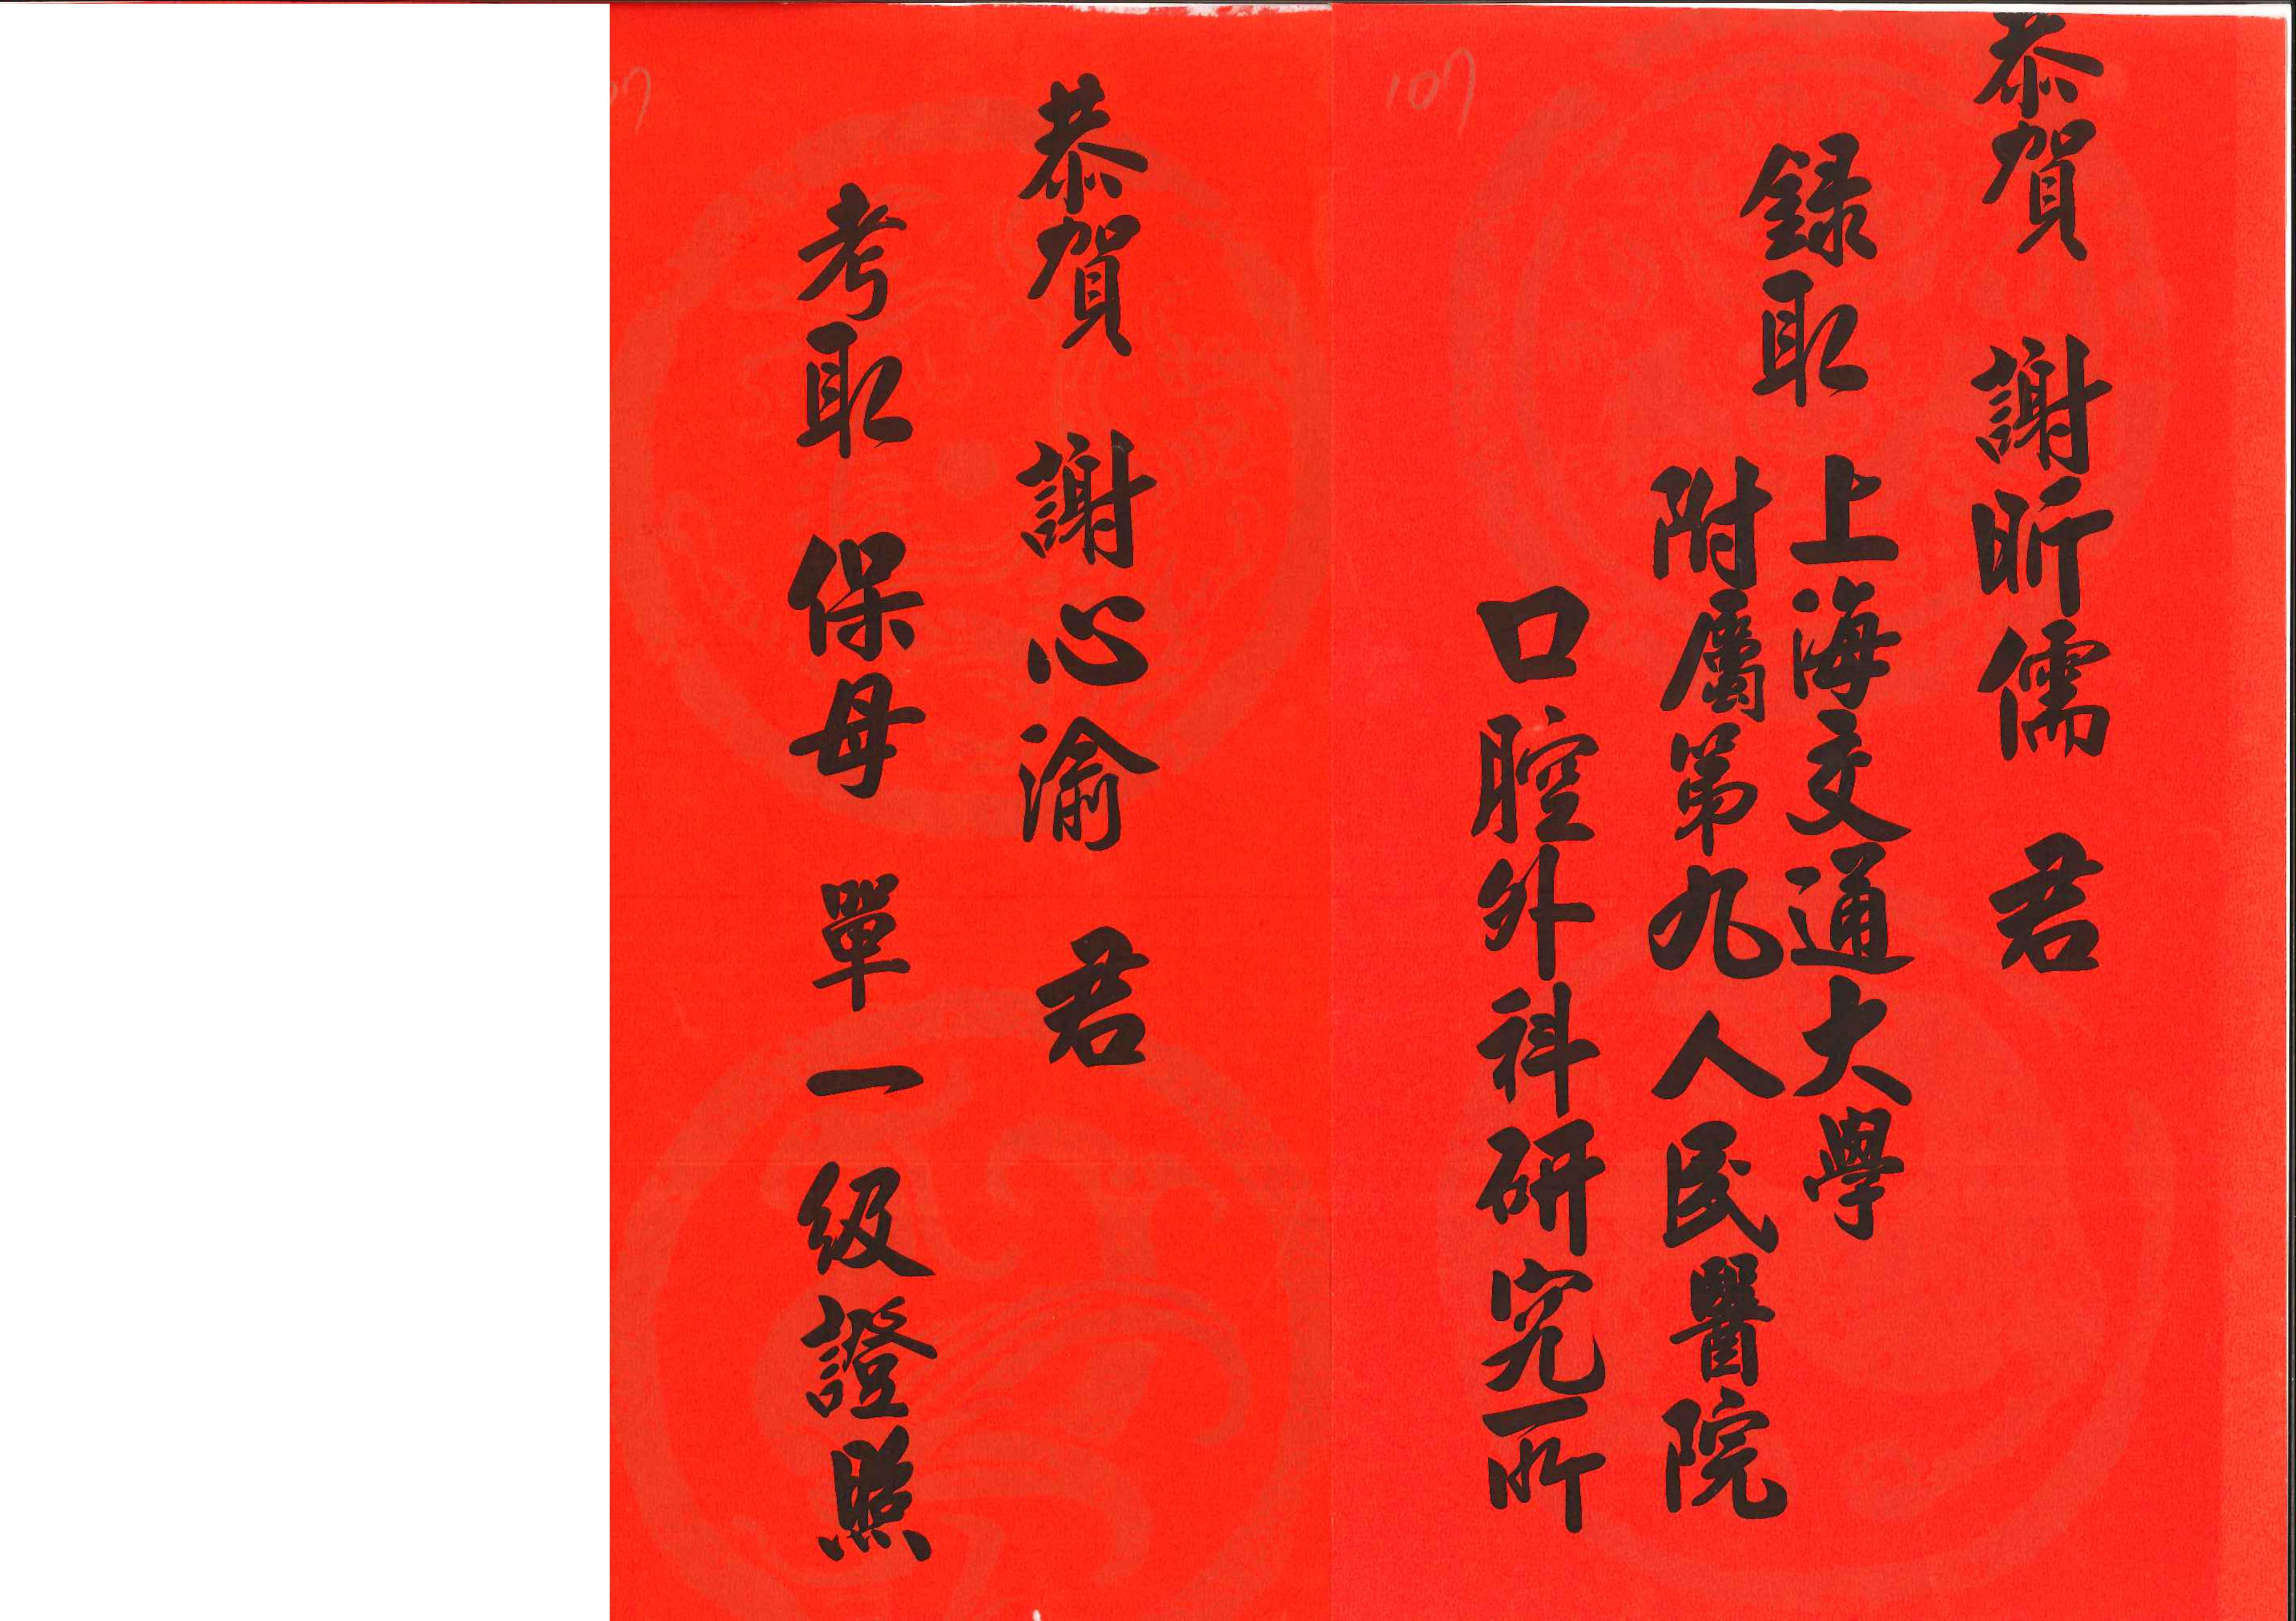 107
恭賀 謝昕儒 君
錄取 上海交通大學
附屬第九人民醫院
口腔外科研究所
07
恭賀 謝心渝 君
考取 保母 單一級證照